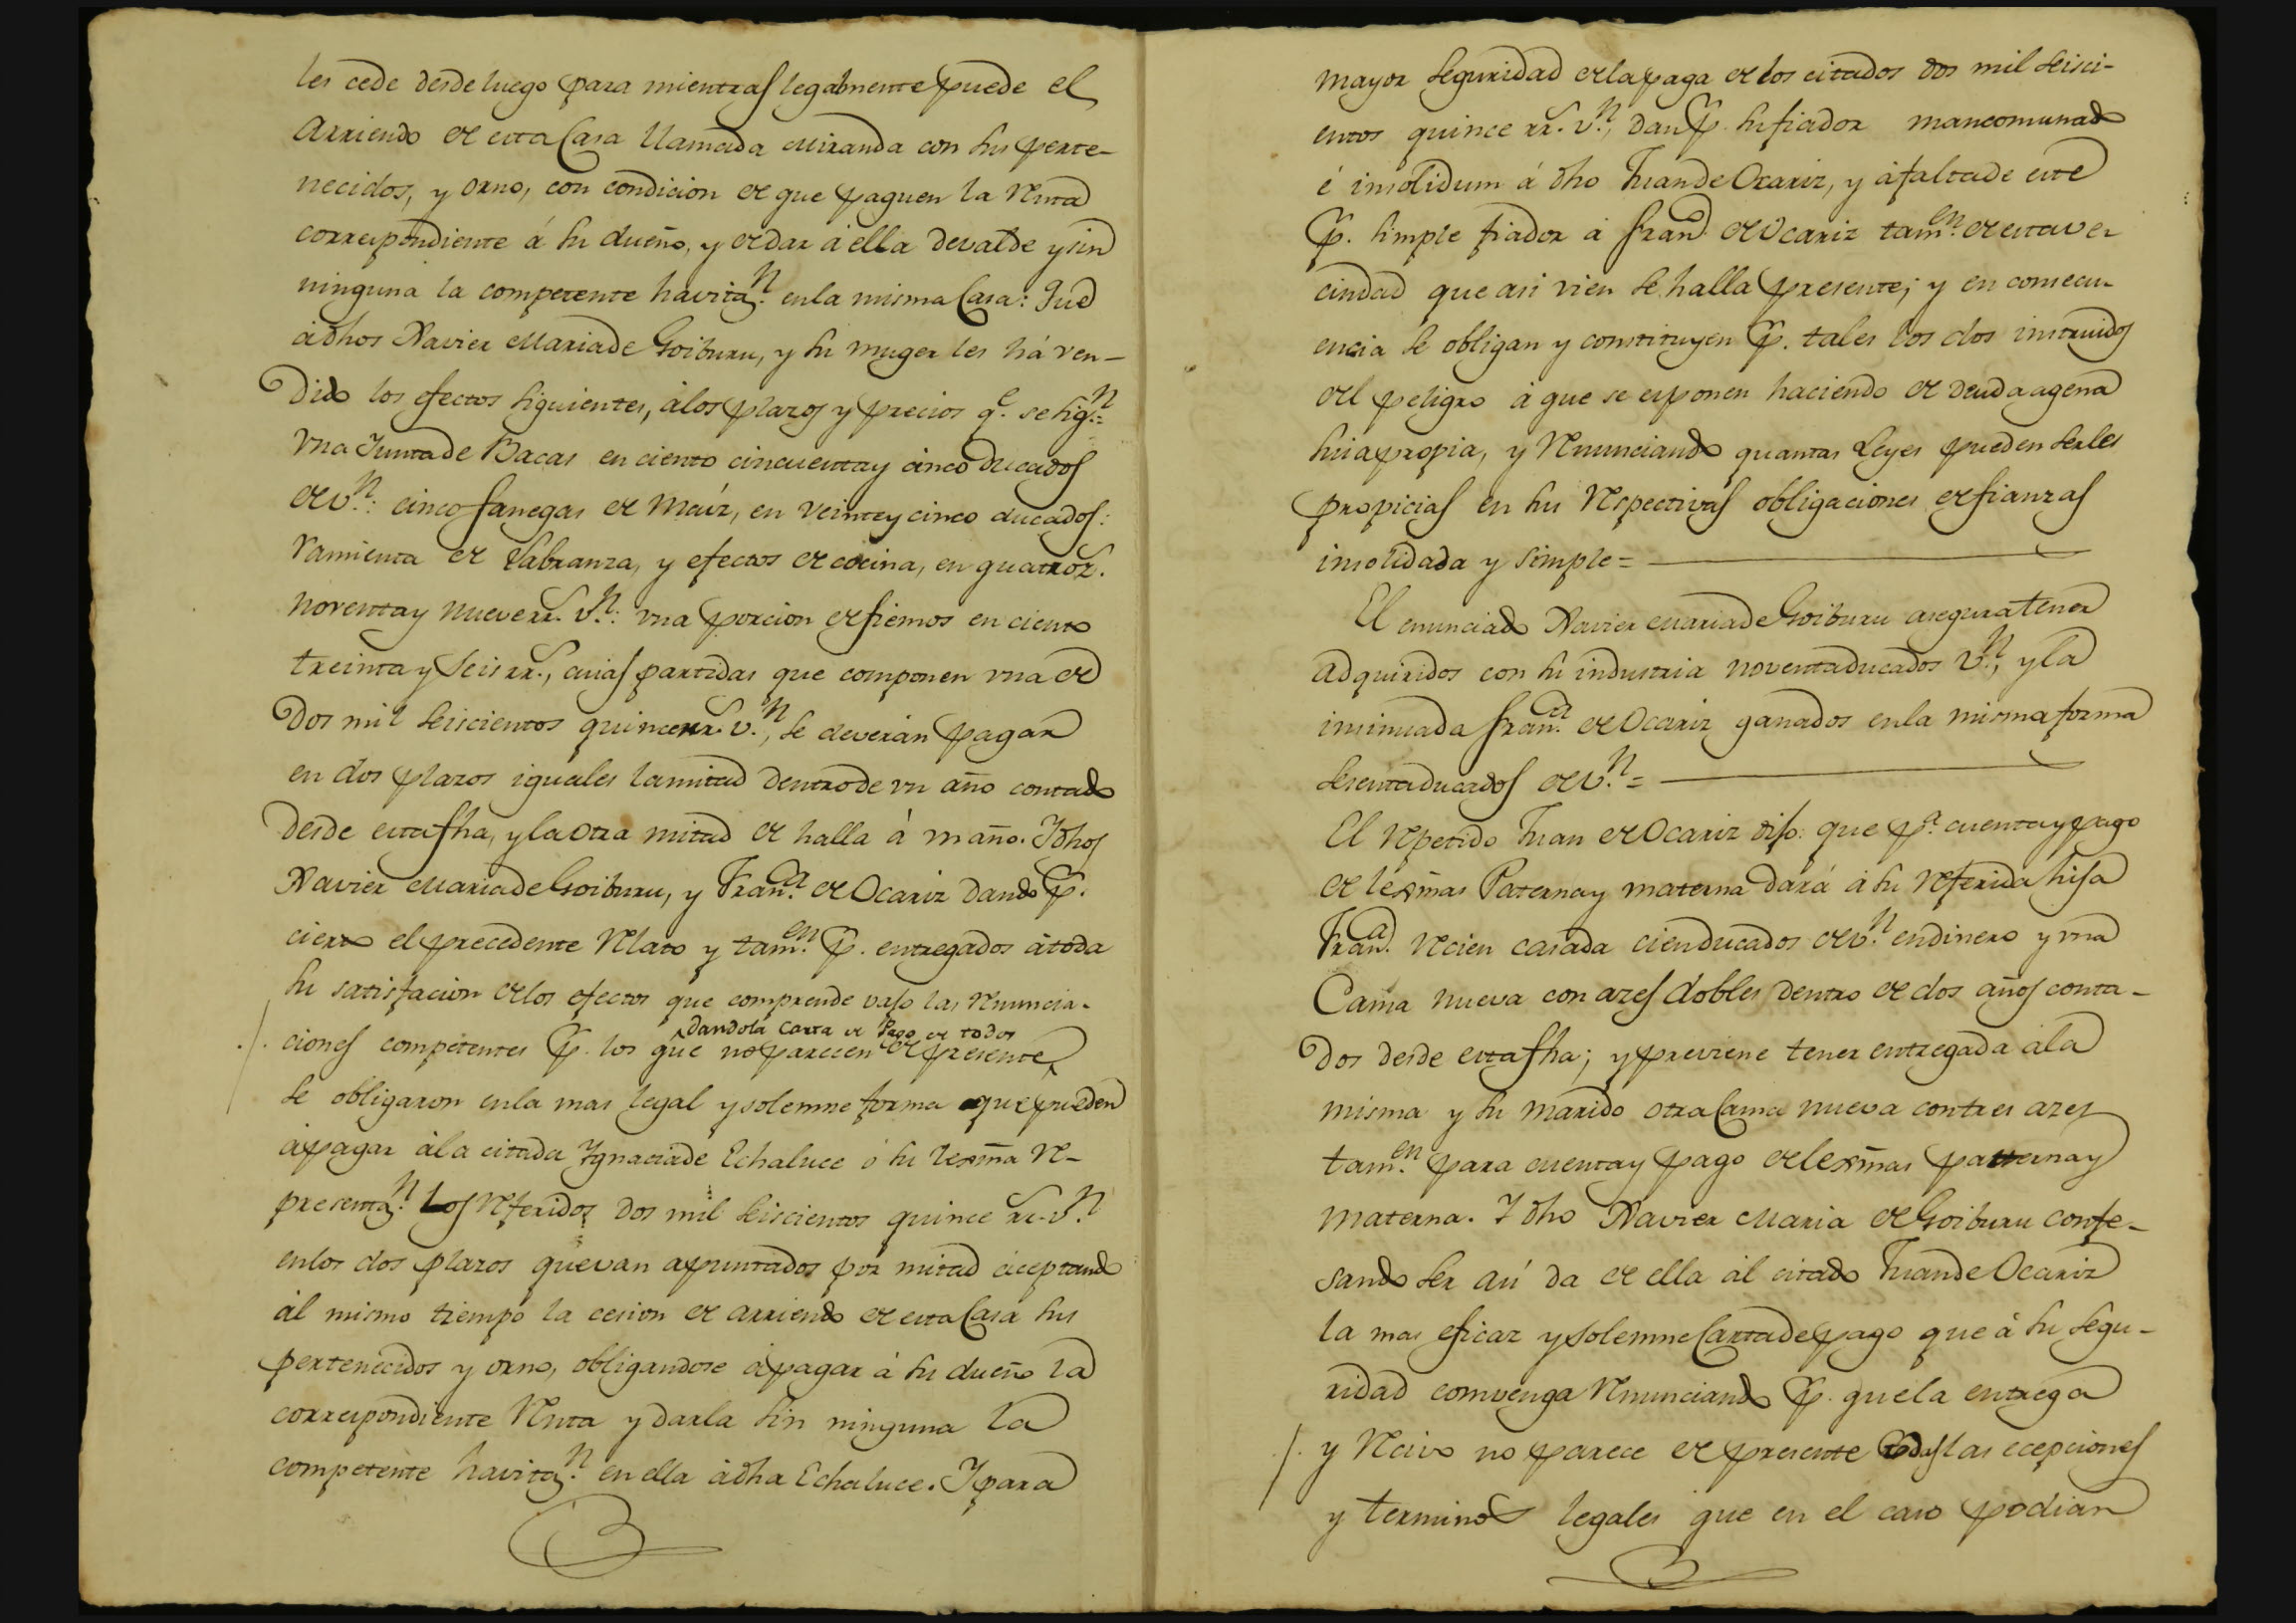 les cede desde luego para mientras legalmente puede el
Arriendo de esta Casa llamada Miranda con sus perte-
necidos, y orno, con condicion de que paguen la Renta
correspondiente á su dueño, y de dar á ella devalde y sin
ninguna la competente havitaⁿ. en la misma Casa: Que
á dhos Xavier Maria de Goiburu, y su muger les há ven-
dido los efectos siguientes, á los plazos y precios qᵉ. se sigⁿ:=
Vna Junta de Bacas en ciento cincuenta y cinco ducados
de vⁿ.: cinco fanegas de Maíz, en veinte y cinco ducados:
ramienta de Labranza, y efectos de cocina, en quatroz.
noventa y nueve rrˢ. vⁿ.: vna porcion de fiemos en ciento
treinta y seis rrˢ., cuias partidas que componen vna de
Dos mil seiscientos quince rrˢ. vⁿ., se deverán pagar
en dos plazos iguales la mitad dentro de vn año contado
desde esta fha, y la otra mitad de halla á vn año. Y dhos
Xavier Maria de Goiburu, y Franᶜᵃ. de Ocariz dando p.
cierto el precedente Relato y tamᵉⁿ. p. entregados á toda
su satisfacion de los efectos que comprende vajo las Renuncia-
dandola Carta de Pago de todos
ciones competentes p. los que no parecen de presente
se obligaron en la mas legal y solemne forma que pueden
á pagar á la citada Ygnacia de Echaluce ó su lexma Re-
presentaⁿ. Los Referidos dos mil seiscientos quince rrˢ. vⁿ.
en los dos plazos que van apuntados por mitad aceptando
ál mismo tiempo la cesion de arriendo de esta Casa sus
pertenecidos y orno, obligandose á pagar á su dueño la
correspondiente Renta y darla sin ninguna la
competente havitaⁿ. en ella á dha Echaluce. Y para
mayor seguridad de la paga de los citados dos mil seisci-
entos quince rrˢ. vⁿ., dan p. su fiador mancomunado
é insolidum á dho Juan de Ocariz, y á falta de este
p. simple fiador á Franᶜᵒ. de Ocariz tamᵉⁿ. de esta ve-
cindad que asi vien se halla presente; y en consecu-
encia se obligan y constituyen p. tales los dos instruidos
del peligro á que se esponen haciendo de deuda agena
suia propia, y Renunciando quantas Leyes pueden serles
propicias en sus Respectivas obligaciones de fianzas
insolidada y simple=
El enunciado Xavier Maria de Goiburu asegura tener
adquiridos con su industria noventa ducados vⁿ., y la
insinuada Franᶜᵃ. de Ocariz ganados en la misma forma
sesenta ducados de vⁿ.=
El Repetido Juan de Ocariz dijo: que pᵃ. cuenta y pago
de lexmas Paterna y materna dará á su Referida hija
Franᶜᵃ. Recien casada cien ducados de vⁿ. en dinero y vna
Cama nueva con azes dobles dentro de dos años conta-
dos desde esta fha; y previene tener entregada á la
misma y su marido otra Cama nueva con tres azes
tamᵉⁿ. para cuenta y pago de lexmas paterna y
materna. Y dho Xavier Maria de Goiburu confe-
sando ser así da de ella ál citado Juan de Ocariz
la mas eficaz y solemne Carta de pago que á su segu-
ridad comvenga Renunciando p. que la entrega
y Recivo no parece de presente todas las ecepciones
y terminos legales que en el caso podian